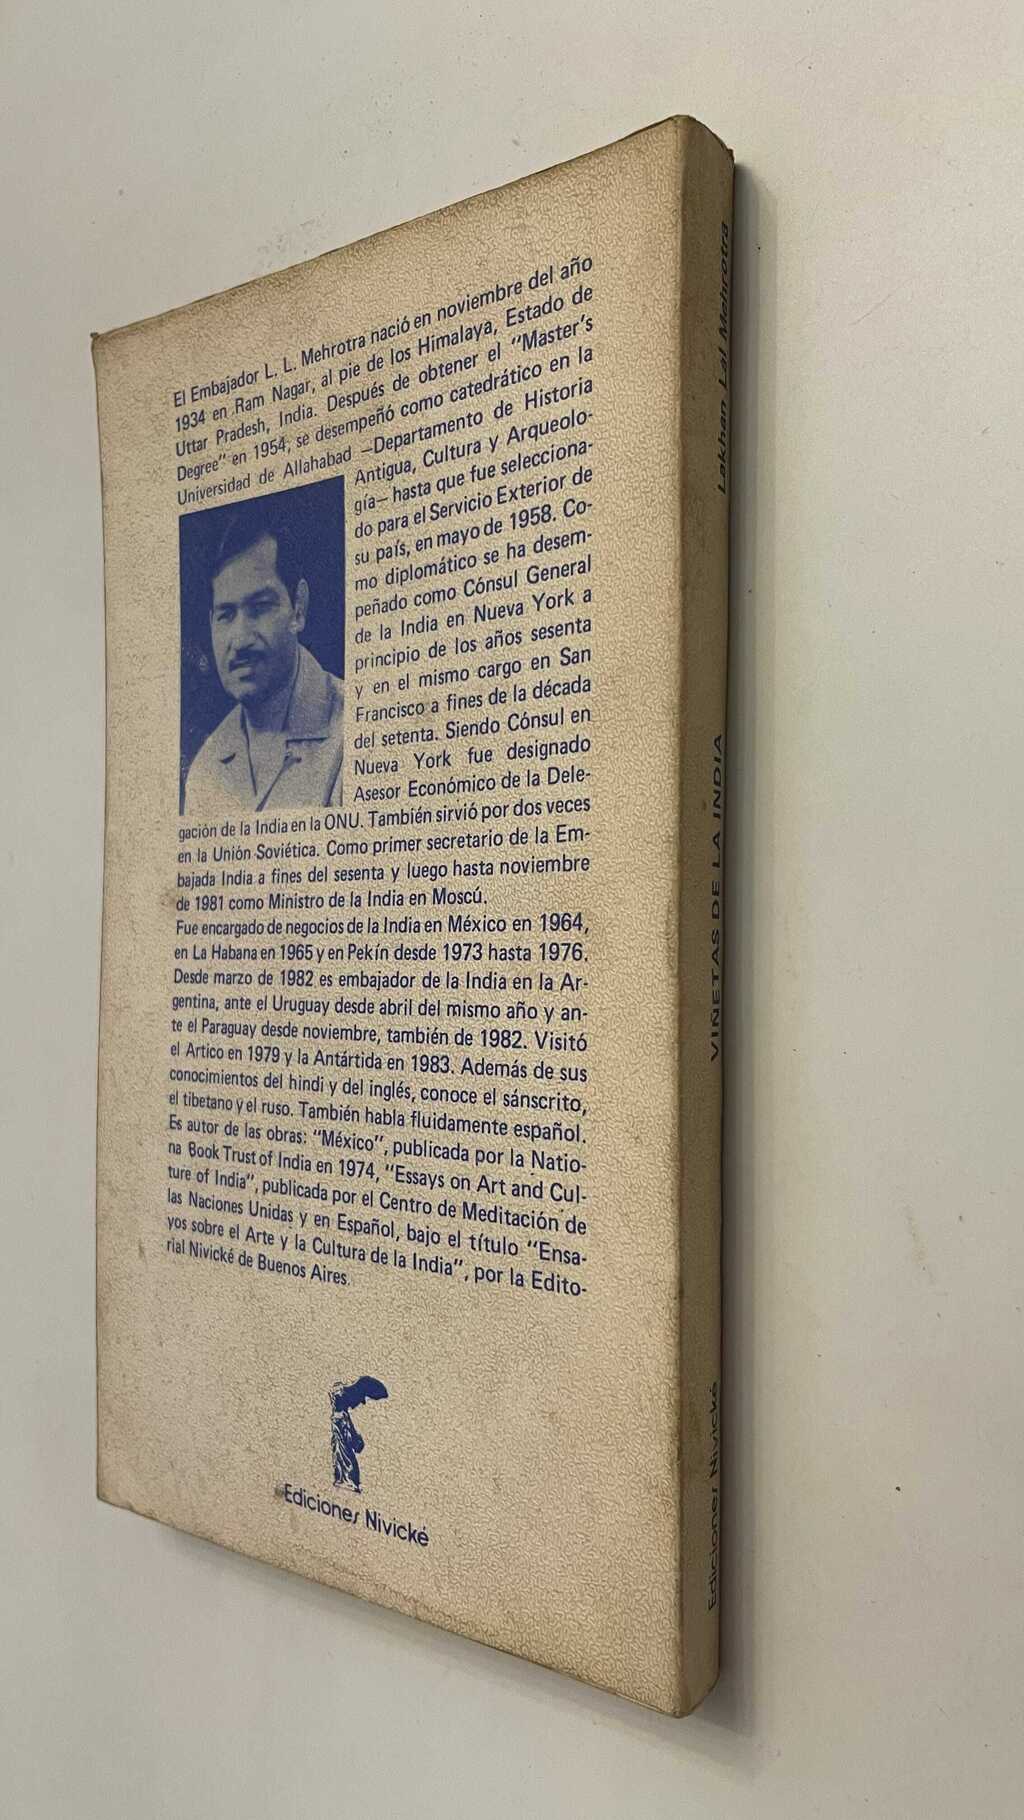 El Embajador L. L. Mehrotra nació en noviembre del año
1934 en Ram Nagar, al pie de los Himalaya, Estado de
Uttar Pradesh, India. Después de obtener el "Master's
Degree" en 1954, se desempeñó como catedrático en la
Universidad de Allahabad —Departamento de Historia
Antigua, Cultura y Arqueolo-
gía— hasta que fue selecciona-
do para el Servicio Exterior de
su país, en mayo de 1958. Co-
mo diplomático se ha desem-
peñado como Cónsul General
de la India en Nueva York a
principio de los años sesenta
y en el mismo cargo en San
Francisco a fines de la década
del setenta. Siendo Cónsul en
Nueva York fue designado
Asesor Económico de la Dele-
gación de la India en la ONU. También sirvió por dos veces
en la Unión Soviética. Como primer secretario de la Em-
bajada India a fines del sesenta y luego hasta noviembre
de 1981 como Ministro de la India en Moscú.
Fue encargado de negocios de la India en México en 1964,
en La Habana en 1965 y en Pekín desde 1973 hasta 1976.
Desde marzo de 1982 es embajador de la India en la Ar-
gentina, ante el Uruguay desde abril del mismo año y an-
te el Paraguay desde noviembre, también de 1982. Visitó
el Artico en 1979 y la Antártida en 1983. Además de sus
conocimientos del hindi y del inglés, conoce el sánscrito,
el tibetano y el ruso. También habla fluidamente español.
Es autor de las obras: "México", publicada por la Natio-
na Book Trust of India en 1974, "Essays on Art and Cul-
ture of India", publicada por el Centro de Meditación de
las Naciones Unidas y en Español, bajo el título "Ensa-
yos sobre el Arte y la Cultura de la India", por la Edito-
rial Nivické de Buenos Aires.
Ediciones Nivické
Lakhan Lal Mehrotra
VIÑETAS DE LA INDIA
Ediciones Nivické